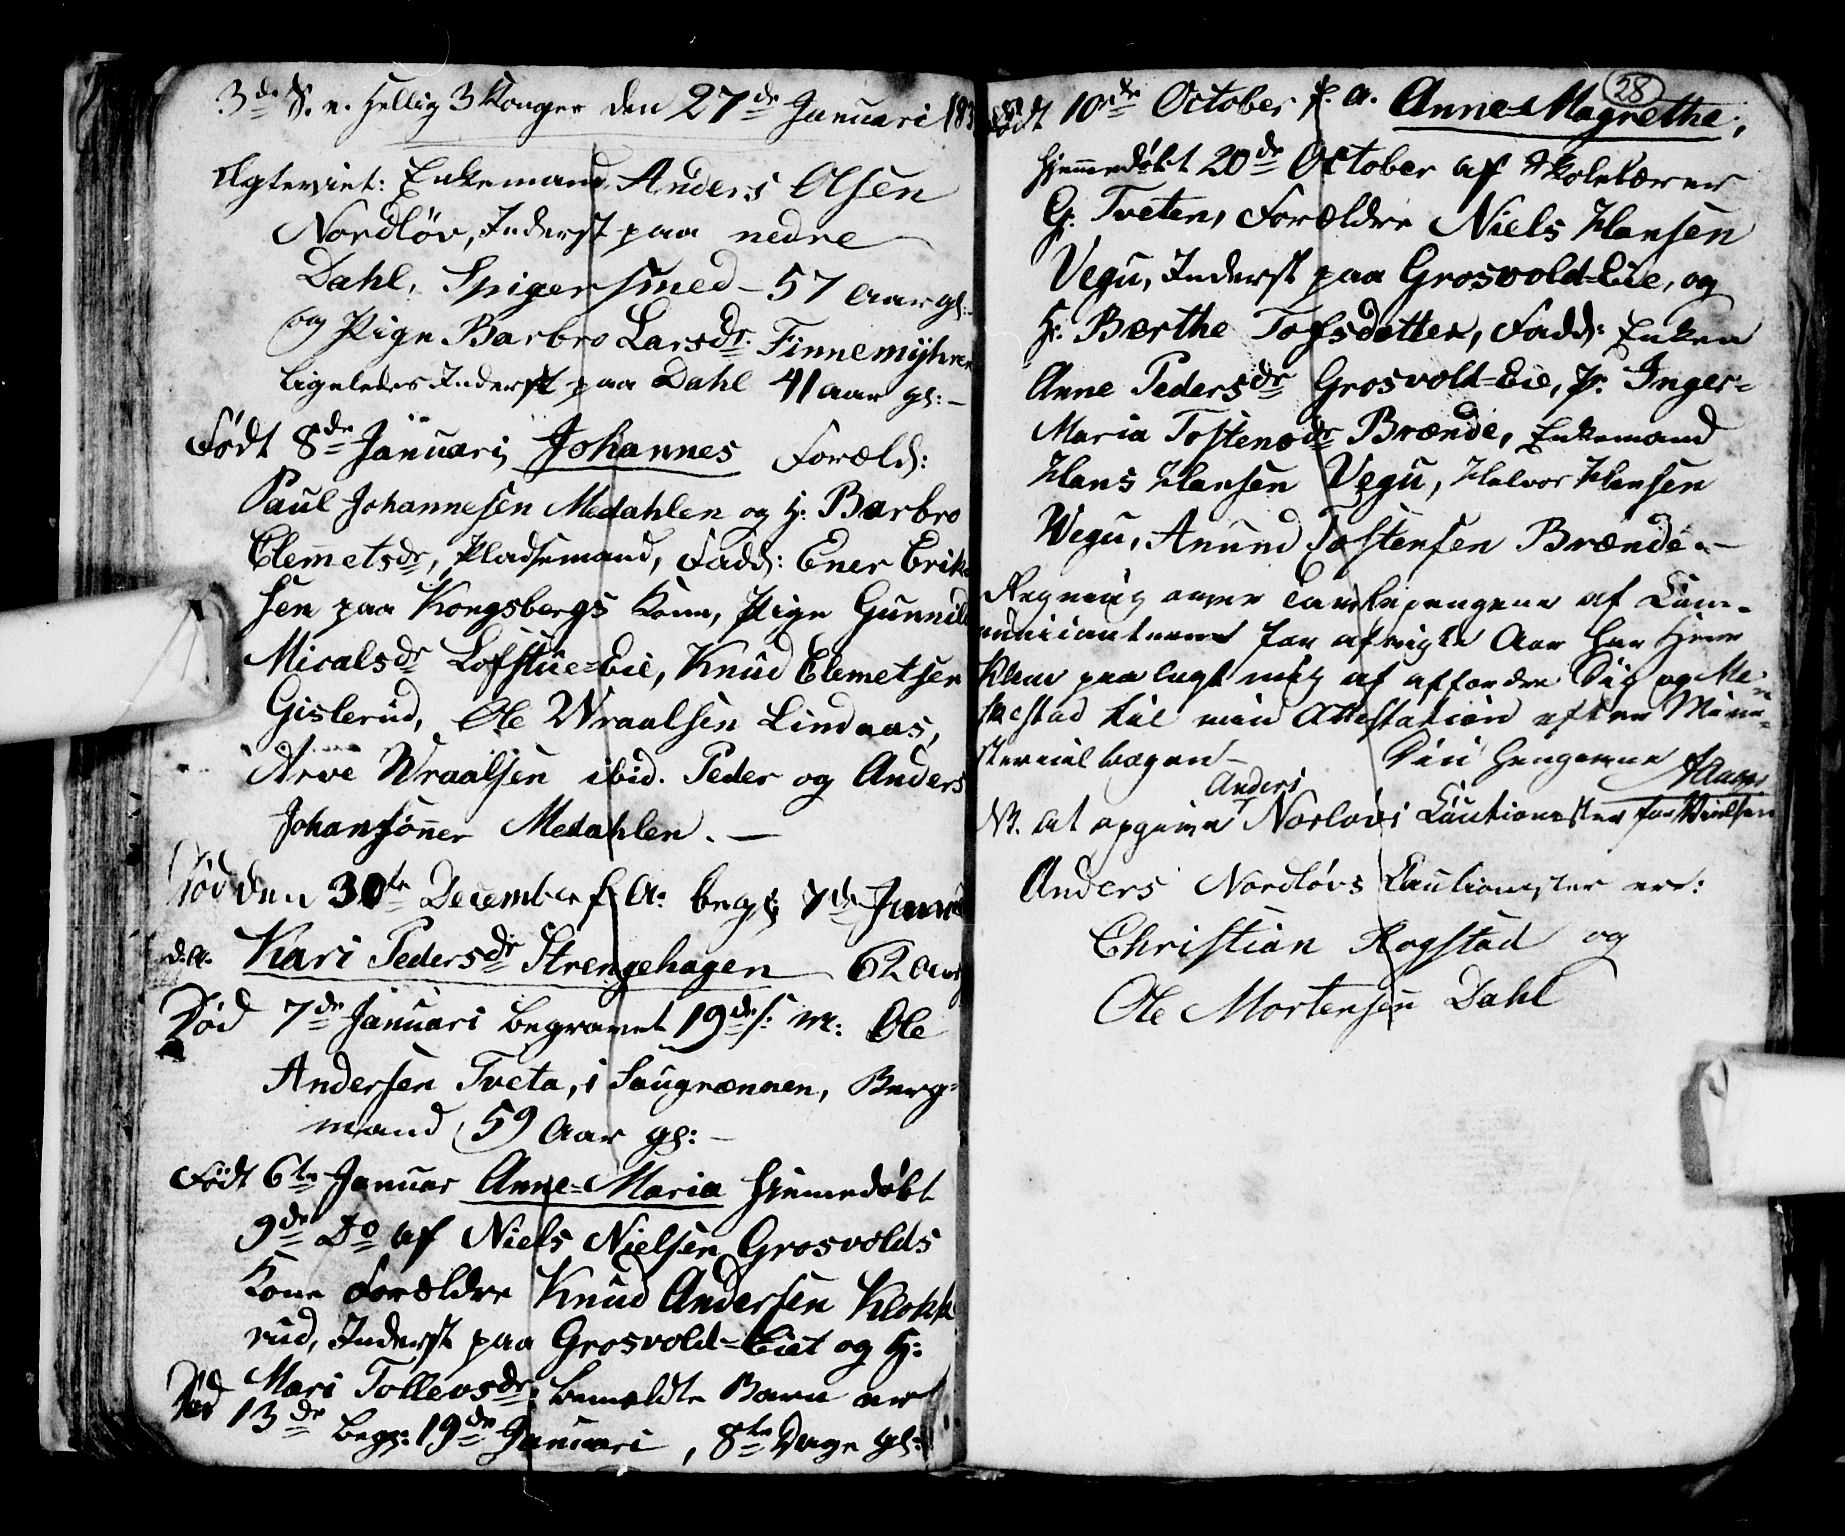 3de S. e. Hellig 3 Konger den 27de Januari 183
Egteviet: Enkemand Anders Olsen
Nordløv, Inderst paa nedre
Dahl, Spigersmed - 57 aar gl:
og Pige Barbro Larsdr. Finnemyhren
ligeledes Inderst paa Dahl 41 aar gl: -
Født 8de Januari, Johannes Foreld:
Paul Johannesen Medahlen og H: Barbro
Clemetsdr, Pladsemand, Fadd: Ener Erik-
sen paa Kongsbergs Kone, Pige Gunnild
Micalsdr Lofstue-Eie, Knud Clemetsen
Gislerud, Ole Wraalsen Lindaas,
Arve Wraalsen ibid. Peder og Anders
Johansønner Medahlen. -
Død den 30te December f. A: begr: 7de Januari
d. A. Kari Pedersdr Strengehagen 62 aar
Død 7de Januari begravet 19de s. M: Ole
Andersen Tveta, i Saugrænnen, Berg-
mand 59 Aar gl: -
Født 6te Januar Anne-Maria hjemedøbt
9de Do af Niels Nielsen Grosvolds
Kone Forældre Knud Andersen Klokke
rud, Inderst paa Grosvold-Eiet og H:
Mari Tollevsdr, bemeldte Barn er
Død 13de begr: 19de Januari, 8te Dage gl:
28
Født 10de October f. a. Anne-Magrethe,
hjemmedøbt 20de October af Skolelærer
G. Tveten, Forældre Niels Hansen
Vegu, Inderst paa Grosvold-Eie, og
H: Bærthe Tofsdatter, Fadd: Enken
Anne Pedersdr Grosvold-Eie, P. Inger-
Maria Tostensdr Brænde, Enkemand
Hans Hansen Vegu, Halvor Hansen
Wegu, Anund Tostensen Brænde. -
Regning over Tavlepengene af Com-
municanterne for afvigte Aar har Herr
paalagt mig at affordre Dig og Me-
stad til min Attestation efter Mini-
sterialbogen -
Din hengivne Aaas
NB. at opgive Anders Norløvs Cautionister for
Anders Nordløvs Cautionister er:
Christian Rogstad og
Ole Mortensen Dahl